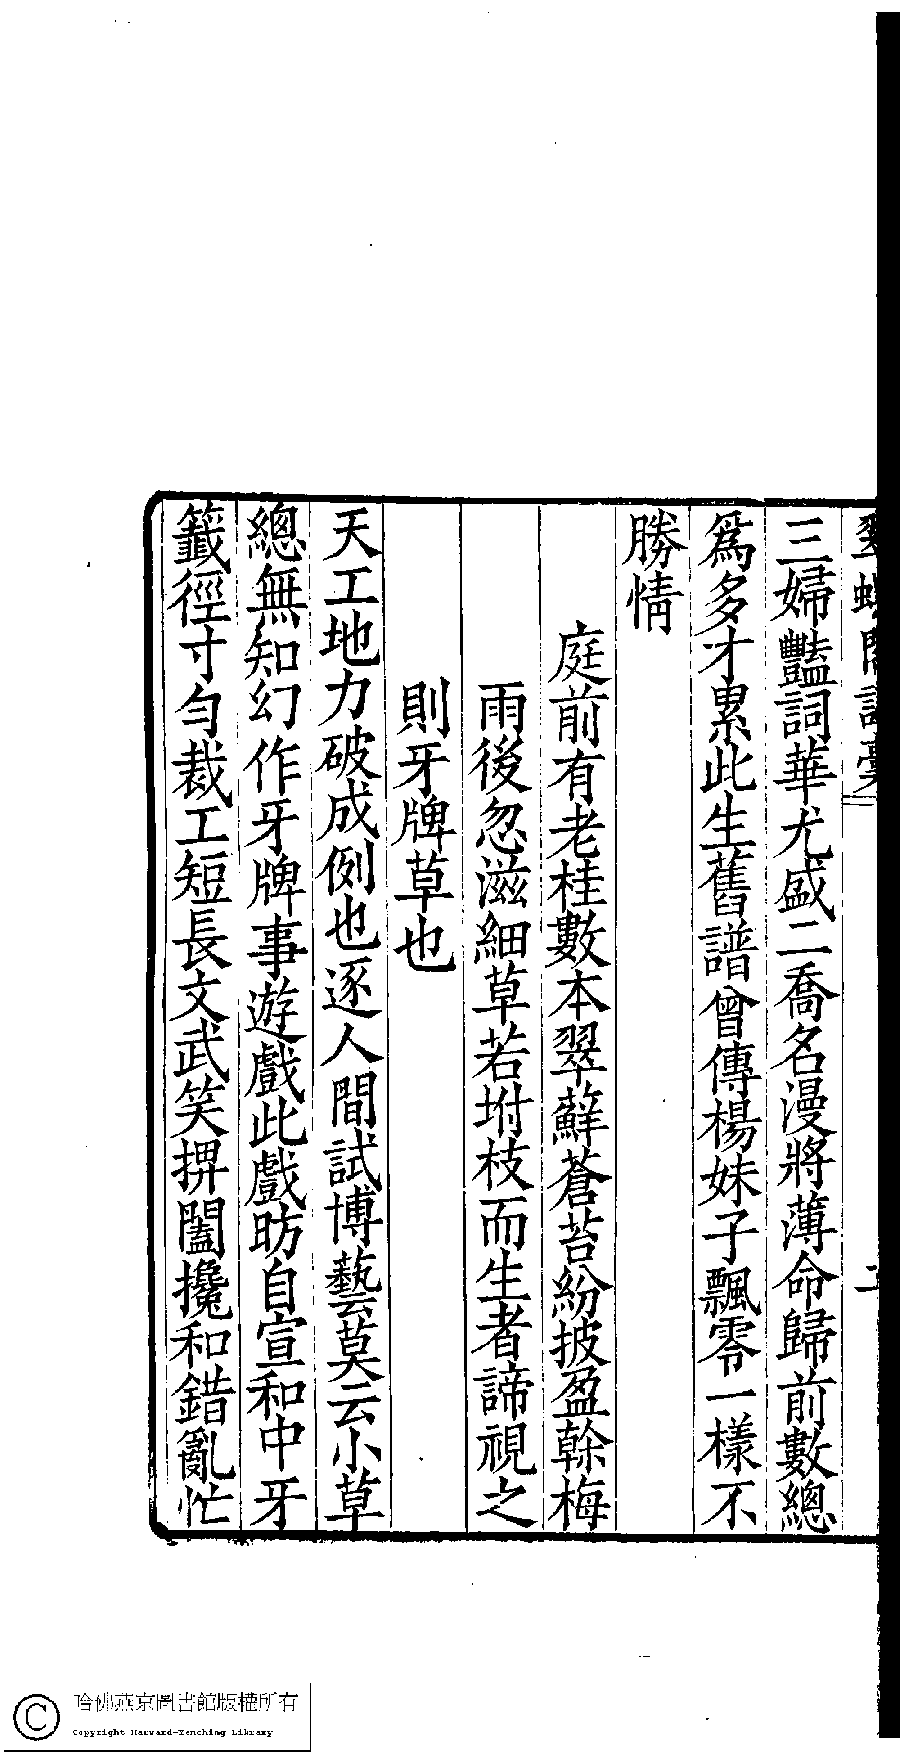 三婦豔詞華尤盛二喬名漫將薄命歸前數總
爲多才累此生舊譜曾傳楊妹子飄零一樣不
勝情
庭前有老桂數本翠蘚蒼苔紛披盈榦梅
雨後忽滋細草若坿枝而生者諦視之
則牙牌草也
天工地力破成例也逐人間試博藝莫云小草
總無知幻作牙牌事遊戲此戲昉自宣和中牙
籤徑寸勻裁工短長文武笑捭闔攙和錯亂忙
哈佛燕京圖書館版權所有
Copyright Harvard-Yenching Library